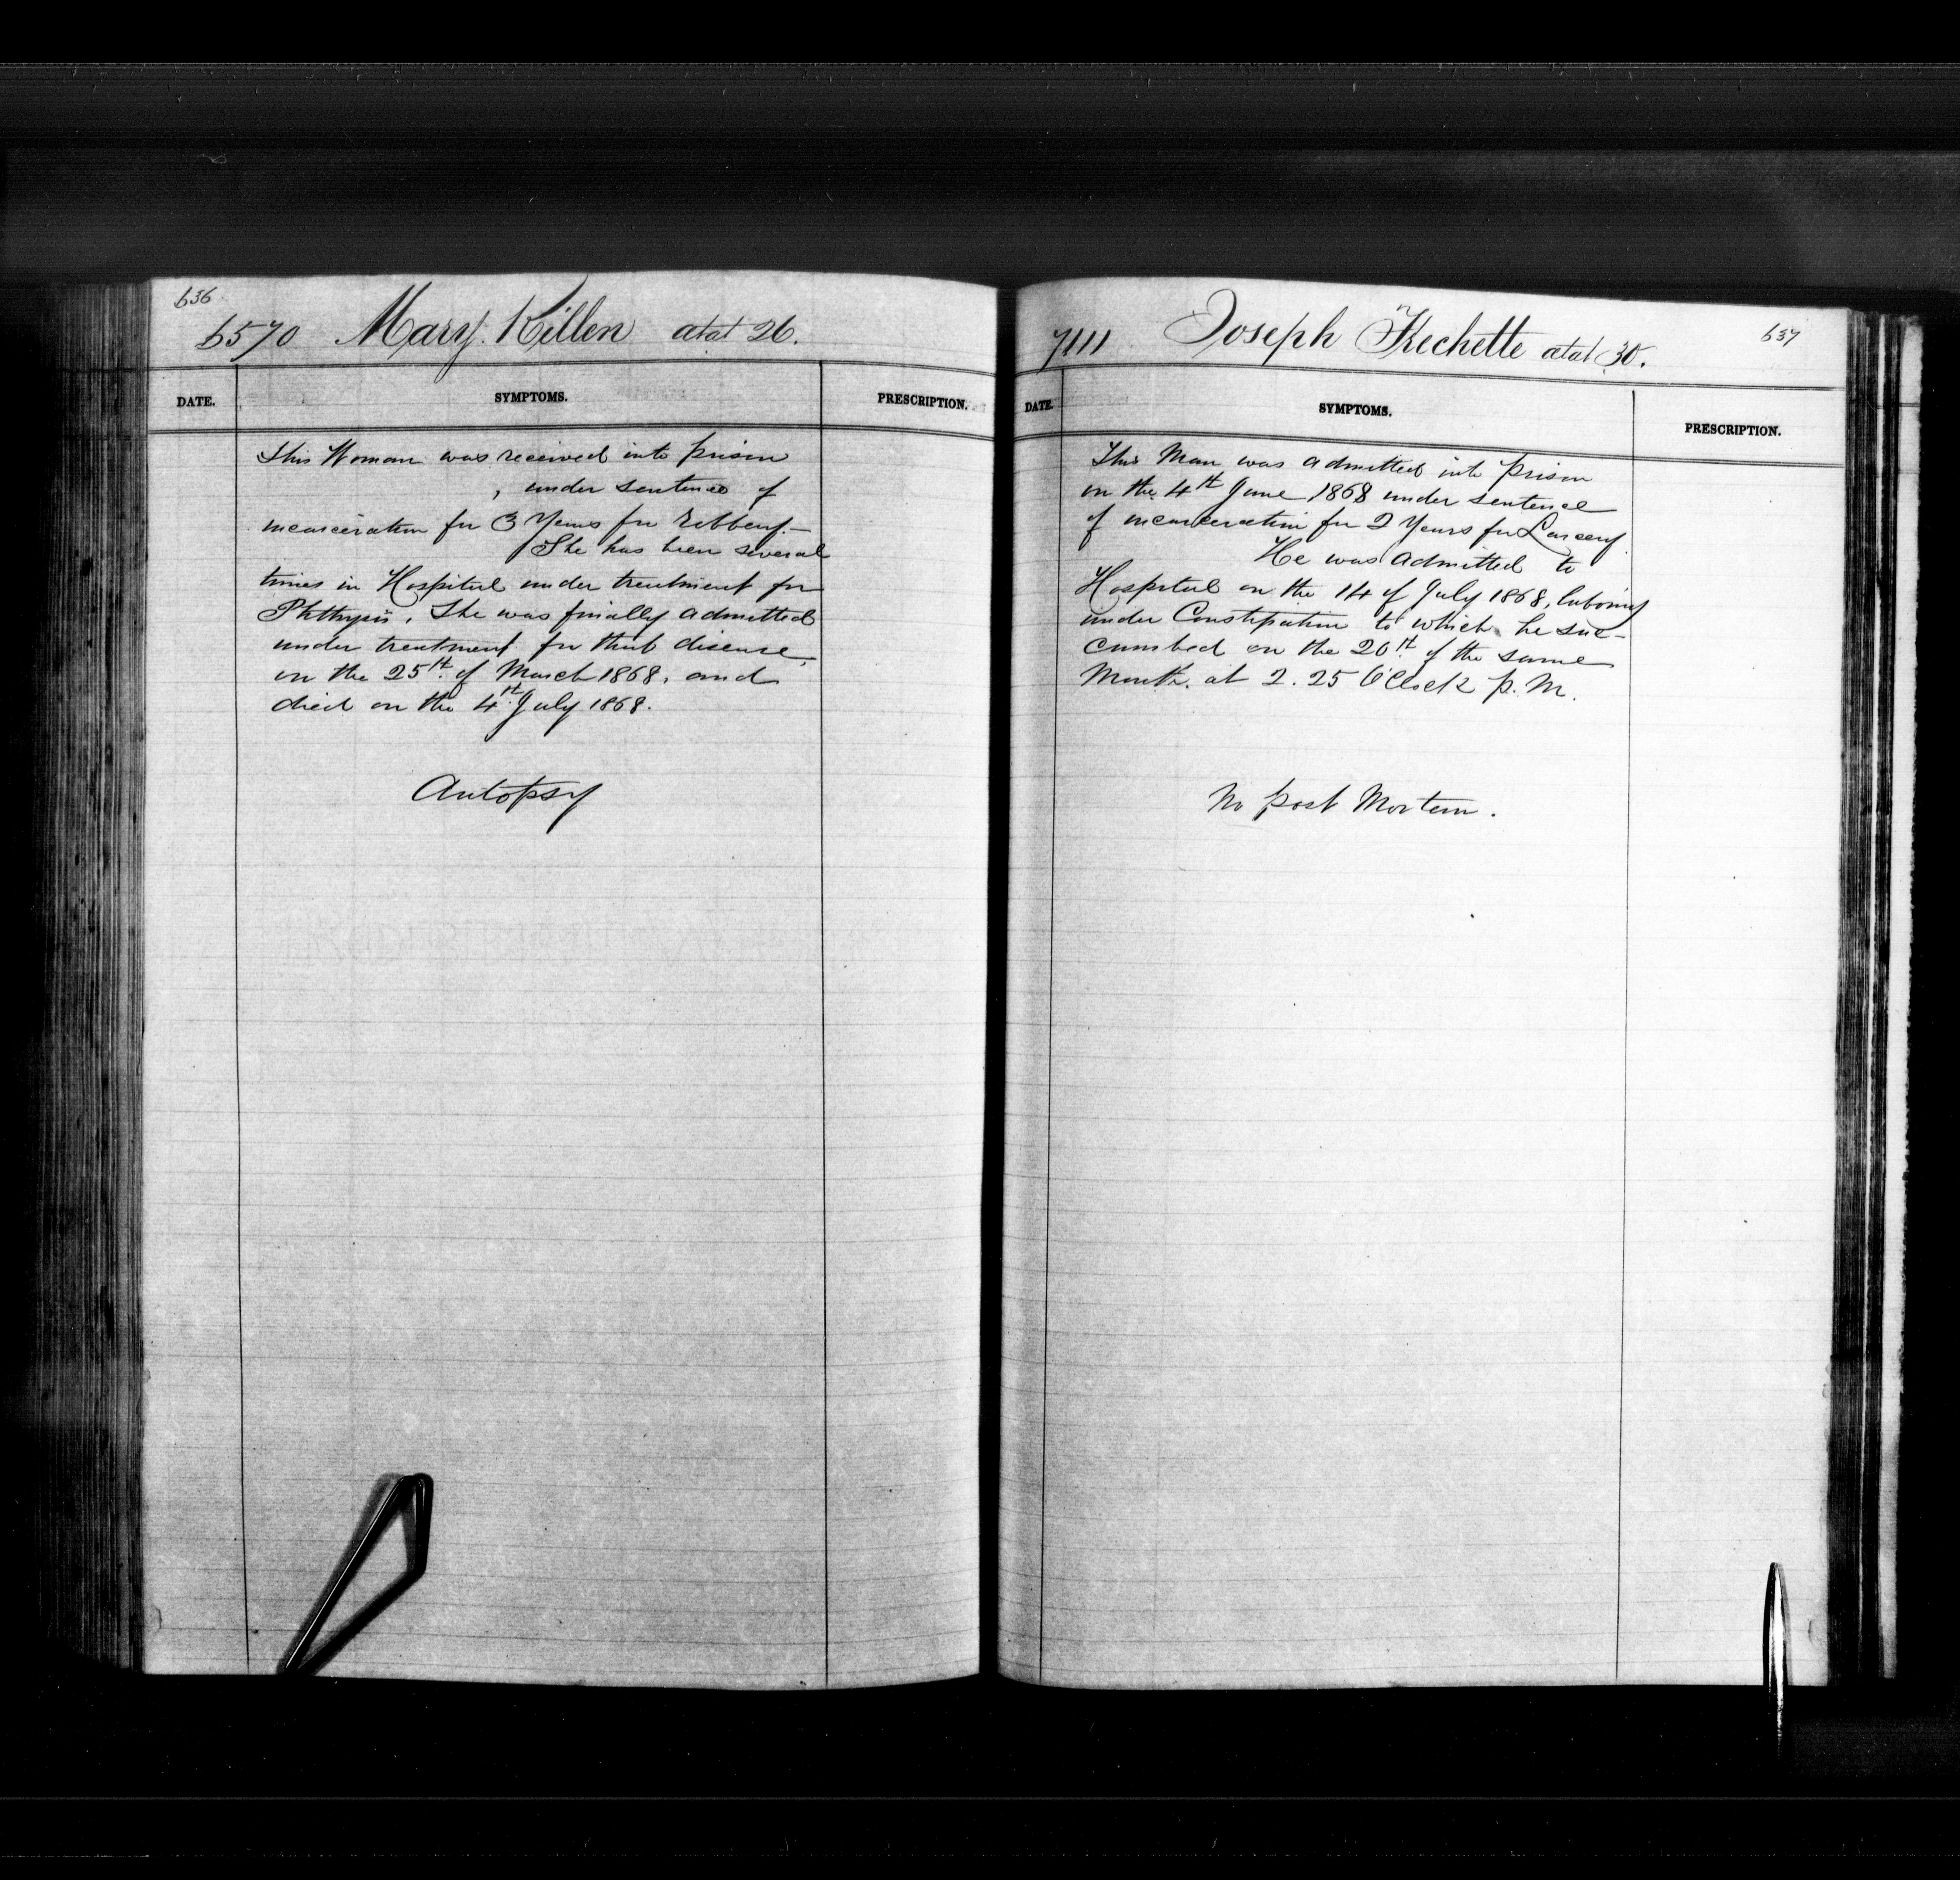 636
6570 Mary Killen ætat 26.
DATE. SYMPTOMS. PRESCRIPTION.
This Woman was received into prison
, under sentence of
incarceration for 3 Years for Robbery.—
She has been several
times in Hospital under treatment for
Phthysis. She was finally admitted
under treatment for that disease,
on the 25th. of March 1868, and
died on the 4th. July 1868.
Autopsy
7111 Joseph Frechette ætat 30.
637
DATE. SYMPTOMS. PRESCRIPTION.
This Man was admitted into prison
on the 4th June 1868 under sentence
of incarceration for 2 Years for Larceny.
He was admitted to
Hospital on the 14 of July 1868, laboring
under Constipation to which he suc-
cumbed on the 20th. of the same
Month. at 2.25 O'Clock p.M.
No post Mortem.